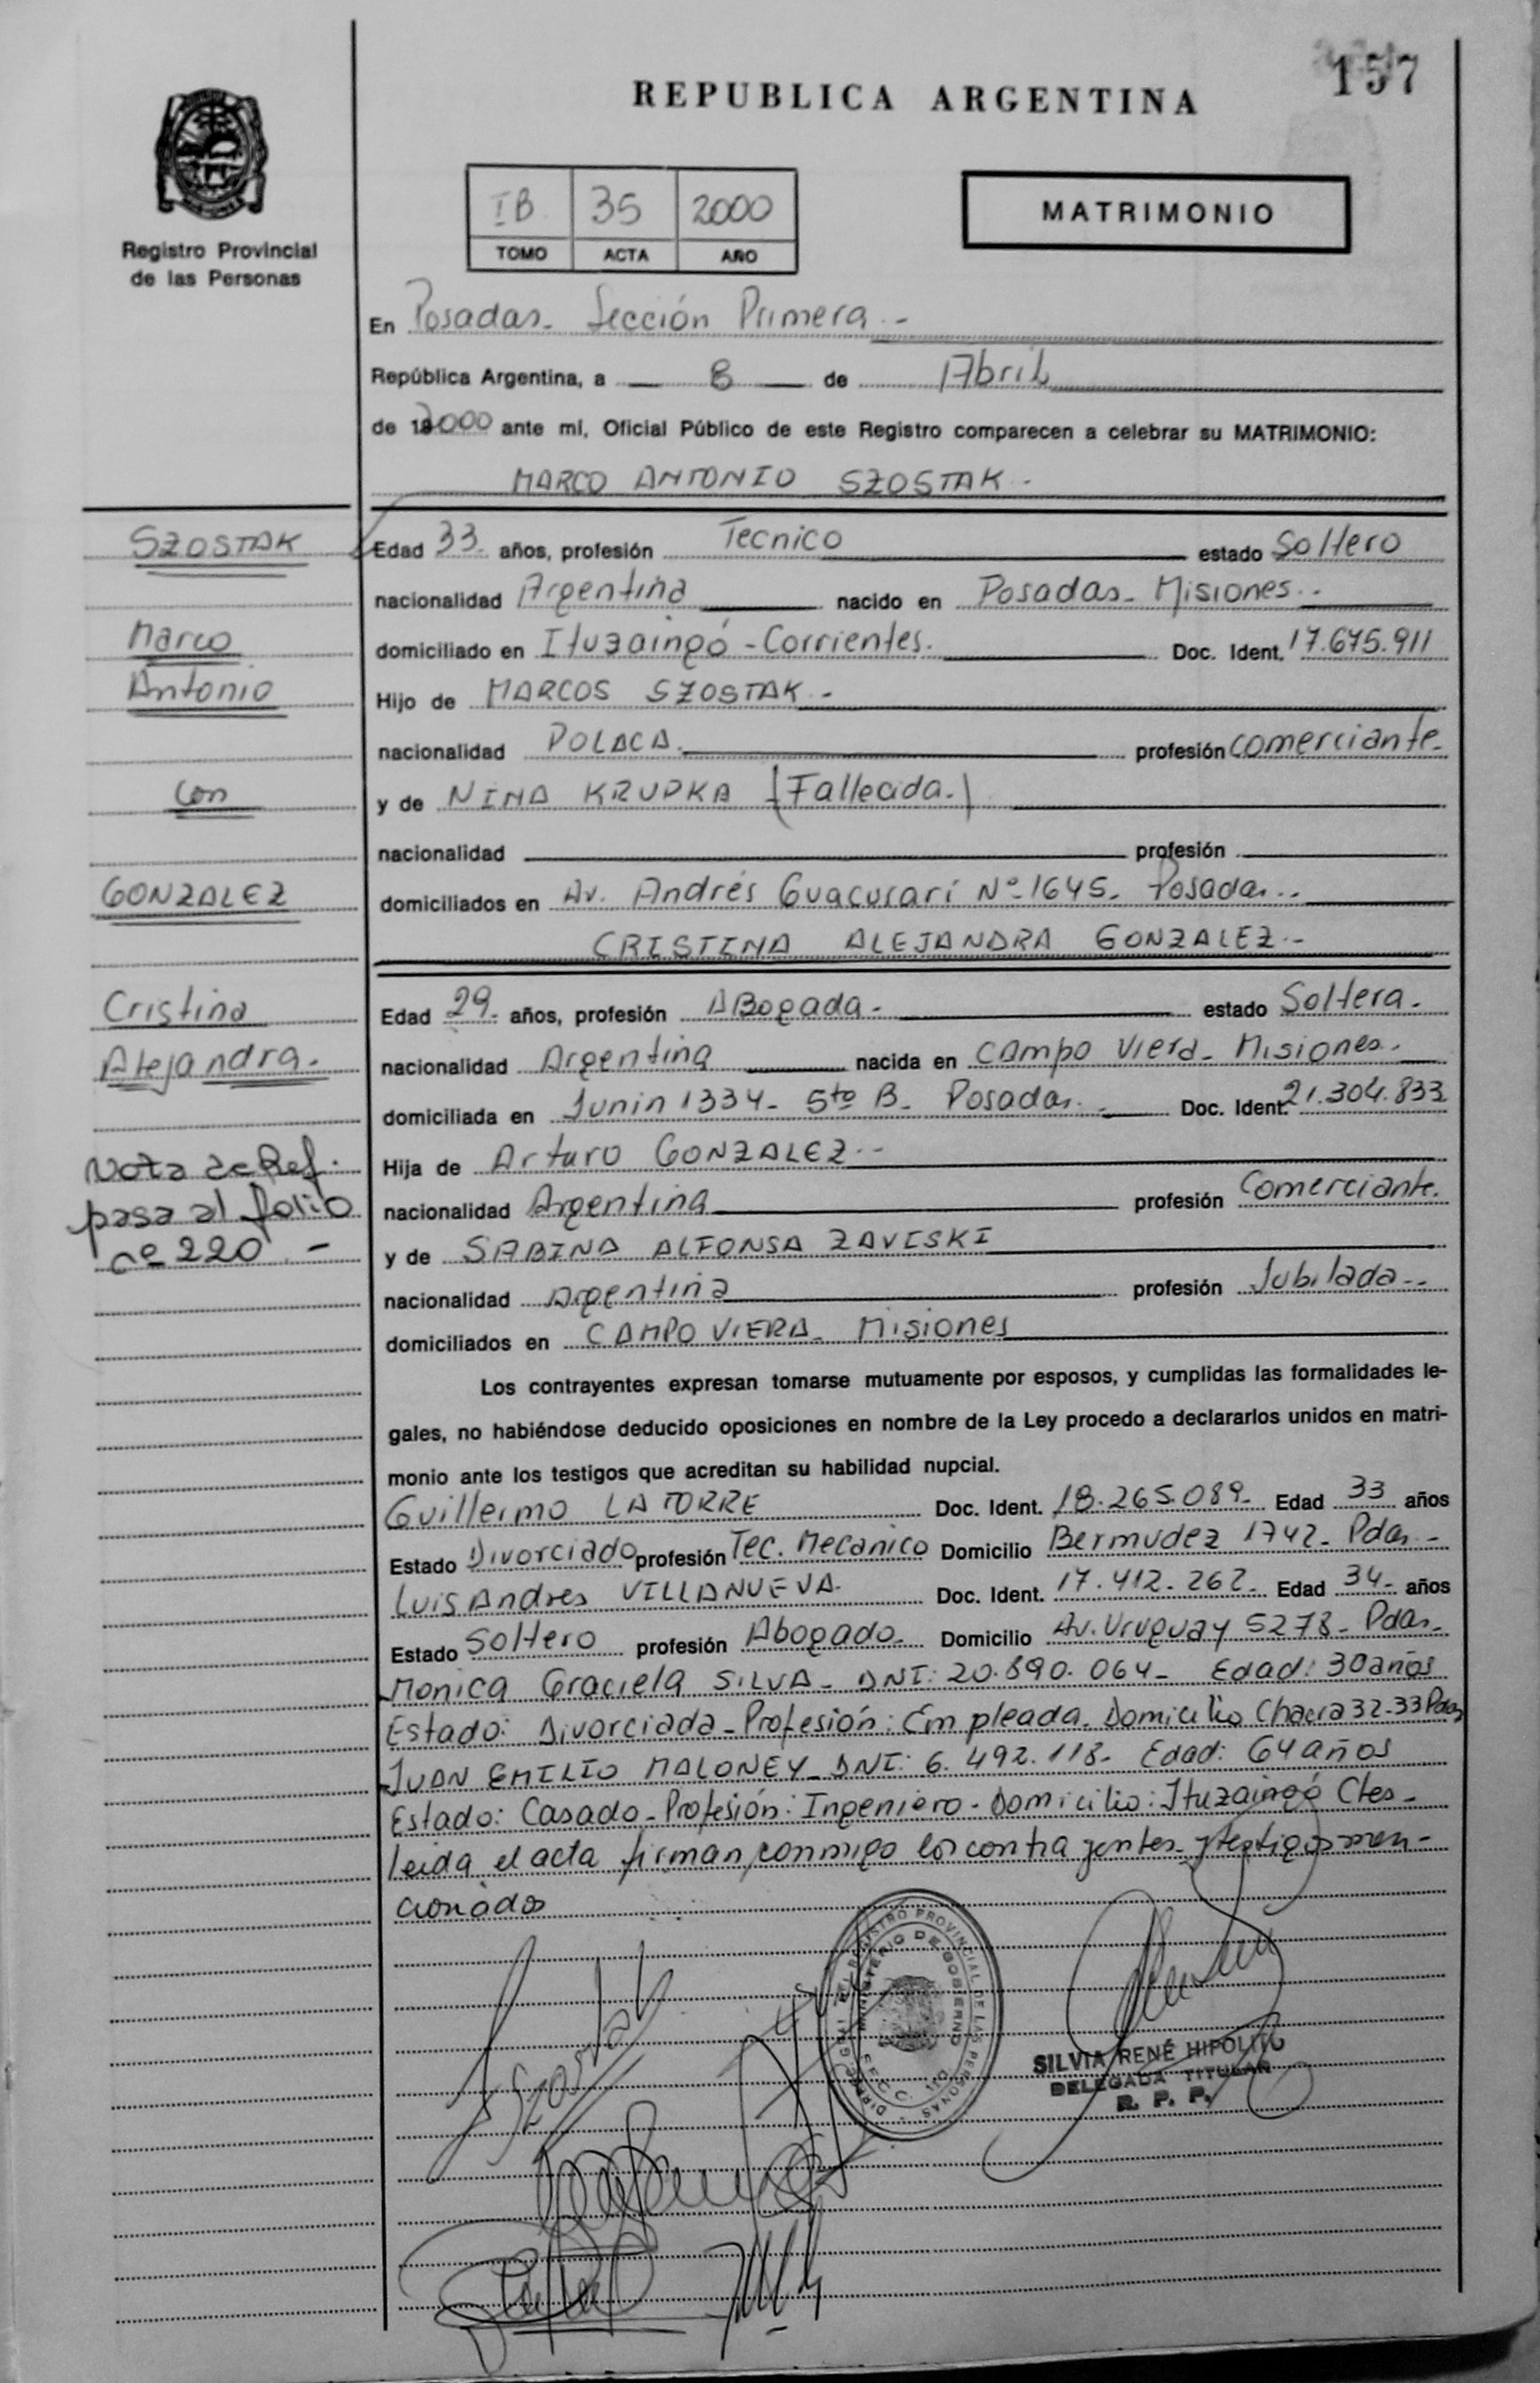 157
REPUBLICA ARGENTINA
Registro Provincial
de las Personas
IB 35 2000
TOMO ACTA AÑO
MATRIMONIO
En Posadas. Sección Primera.-
República Argentina, a 8 de Abril
de 2000 ante mí, Oficial Público de este Registro comparecen a celebrar su MATRIMONIO:
MARCO ANTONIO SZOSTAK.-
SZOSTAK
Marco
Antonio
con
GONZALEZ
Cristina
Alejandra.-
Nota de Ref.
pasa al folio
nº 220.-
Edad 33. años, profesión Tecnico estado Soltero
nacionalidad Argentina nacido en Posadas- Misiones.-
domiciliado en Ituzaingó - Corrientes. Doc. Ident. 17.675.911
Hijo de MARCOS SZOSTAK.-
nacionalidad POLACA. profesión comerciante.
y de NINA KRUPKA (Fallecida.)
nacionalidad profesión
domiciliados en Av. Andrés Guacurarí Nº 1645. Posadas.-
CRISTINA ALEJANDRA GONZALEZ.-
Edad 29. años, profesión ABogada. estado Soltera.
nacionalidad Argentina nacida en CAmpo Viera- Misiones.
domiciliada en Junin 1334- 5to B- Posadas. Doc. Ident. 21.304.833
Hija de Arturo GONZALEZ.-
nacionalidad Argentina profesión Comerciante.
y de SABINA ALFONSA ZAVISKI
nacionalidad Argentina profesión Jubilada.-
domiciliados en CAMPO VIERA- Misiones
Los contrayentes expresan tomarse mutuamente por esposos, y cumplidas las formalidades le-
gales, no habiéndose deducido oposiciones en nombre de la Ley procedo a declararlos unidos en matri-
monio ante los testigos que acreditan su habilidad nupcial.
Guillermo LATORRE Doc. Ident. 18.265.089- Edad 33 años
Estado Divorciado profesión Tec. Mecanico Domicilio Bermudez 1742- Pdas-
Luis Andres VILLANUEVA. Doc. Ident. 17.412.262- Edad 34- años
Estado Soltero profesión Abogado. Domicilio Av. Uruguay 5278- Pdas.
Monica Graciela SILVA- DNI: 20.890.064- Edad: 30 años
Estado: Divorciada- Profesión: Empleada. Domicilio Chacra 32-33 Pdas
JUAN EMILIO MALONEY- DNI: 6.492.118- Edad: 64 años
Estado: Casado- Profesión: Ingeniero- Domicilio: Ituzaingó Ctes-
leida el acta firman conmigo los contrayentes y testigos men-
cionados
Szostak
REGISTRO PROVINCIAL DE LAS PERSONAS
MINISTERIO DE GOBIERNO
SILVIA RENÉ HIPOLITO
DELEGADA TITULAR
R. P. P.